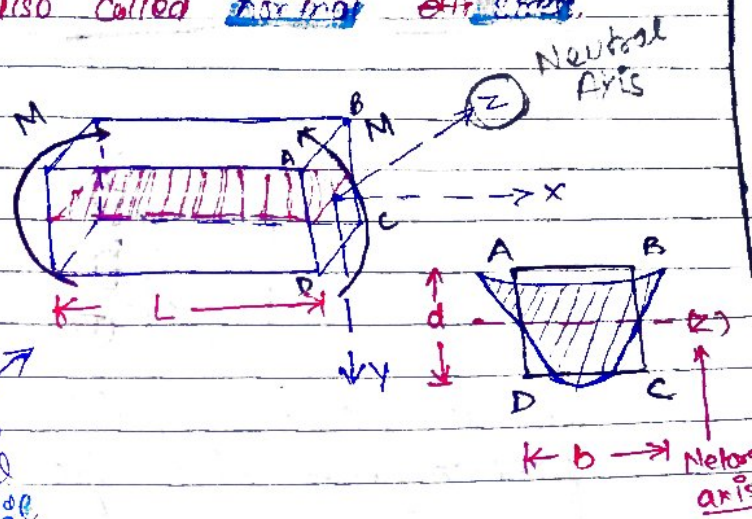 also called
Neutral
Axis
M
B
M
Z
A
X
C
D
L
Y
A
B
d
(Z)
D
C
b
axis